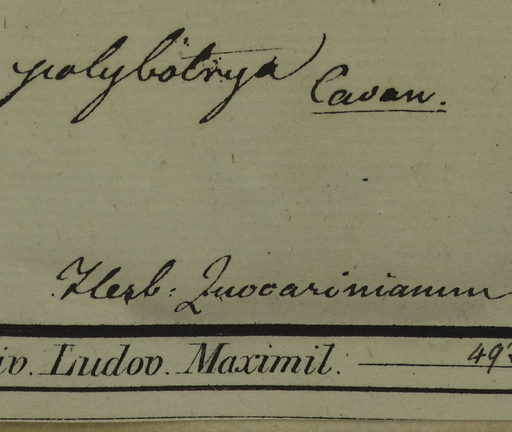 polybotrya Cavan.
Herb: Zuccarinianum
iv. Ludov. Maximil. 49